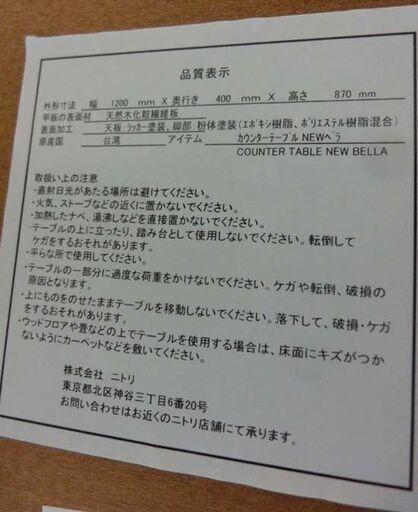 品質表示
外形寸法 幅 1200 mm X 奥行き 400 mm X 高さ 870 mm
甲板の表面材 天然木化粧繊維板
表面加工 天板:ラッカー塗装、脚部 粉体塗装(エポキシ樹脂、ポリエステル樹脂混合)
原産国 台湾 アイテム カウンターテーブル NEWベラ
COUNTER TABLE NEW BELLA
取扱い上の注意
・直射日光があたる場所は避けてください。
・火気、ストーブなどの近くに置かないでください。
・加熱したナベ、湯沸しなどを直接置かないでください。
・テーブルの上に立ったり、踏み台として使用しないでください。転倒して
ケガをするおそれがあります。
・平らな所で使用してください。
・テーブルの一部分に過度な荷重をかけないでください。ケガや転倒、破損の
原因となります。
・上にものをのせたままテーブルを移動しないでください。落下して、破損・ケガ
をするおそれがあります。
・ウッドフロアや畳などの上でテーブルを使用する場合は、床面にキズがつか
ないようにカーペットなどを敷いてください。
株式会社 ニトリ
東京都北区神谷三丁目6番20号
お問い合わせはお近くのニトリ店舗にて承ります。